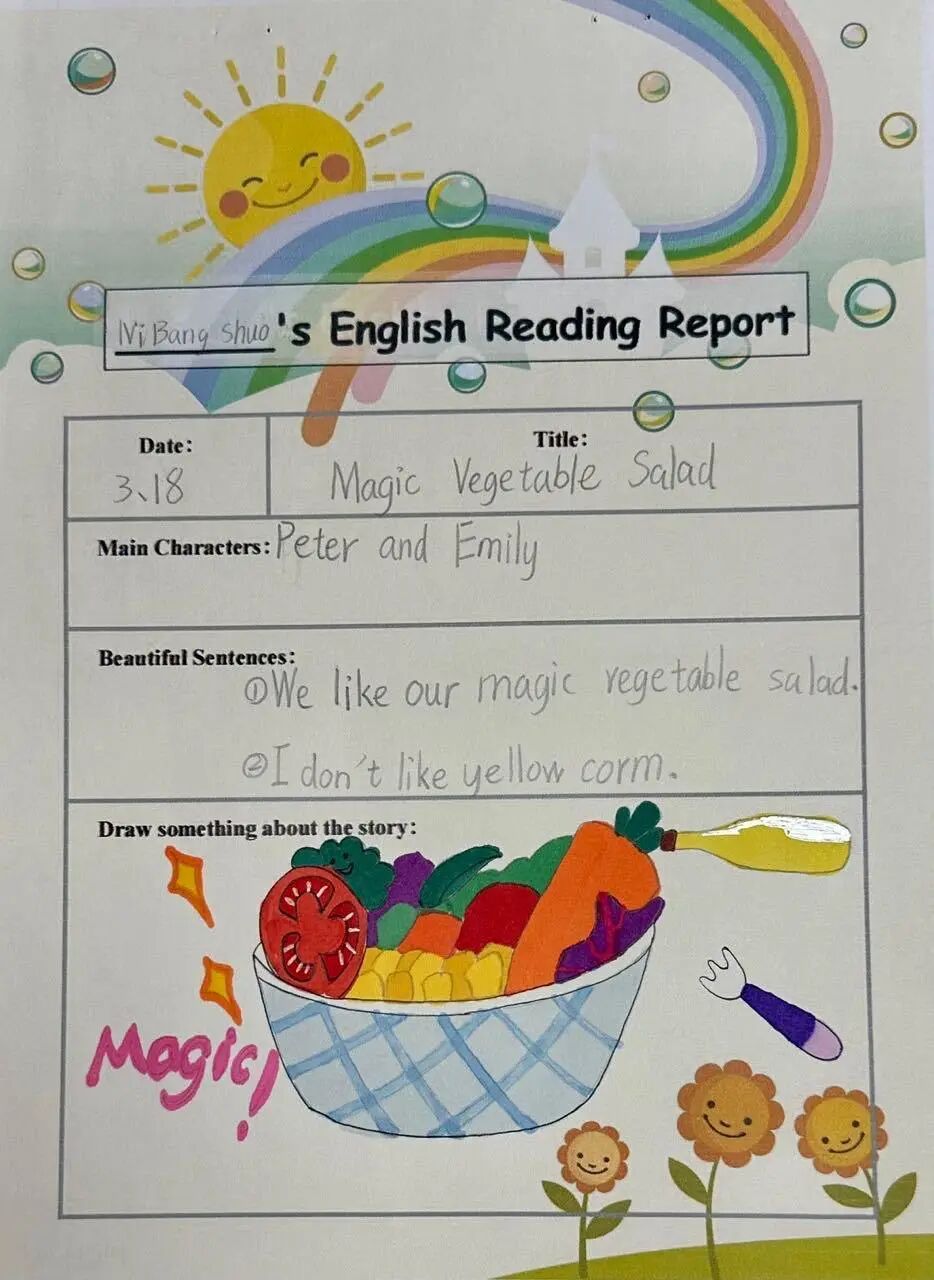 Ni Bang Shuo's English Reading Report
Date:
3、18
Title:
Magic Vegetable Salad
Main Characters: Peter and Emily
Beautiful Sentences:
①We like our magic vegetable salad.
②I don't like yellow corm.
Draw something about the story:
Magic!